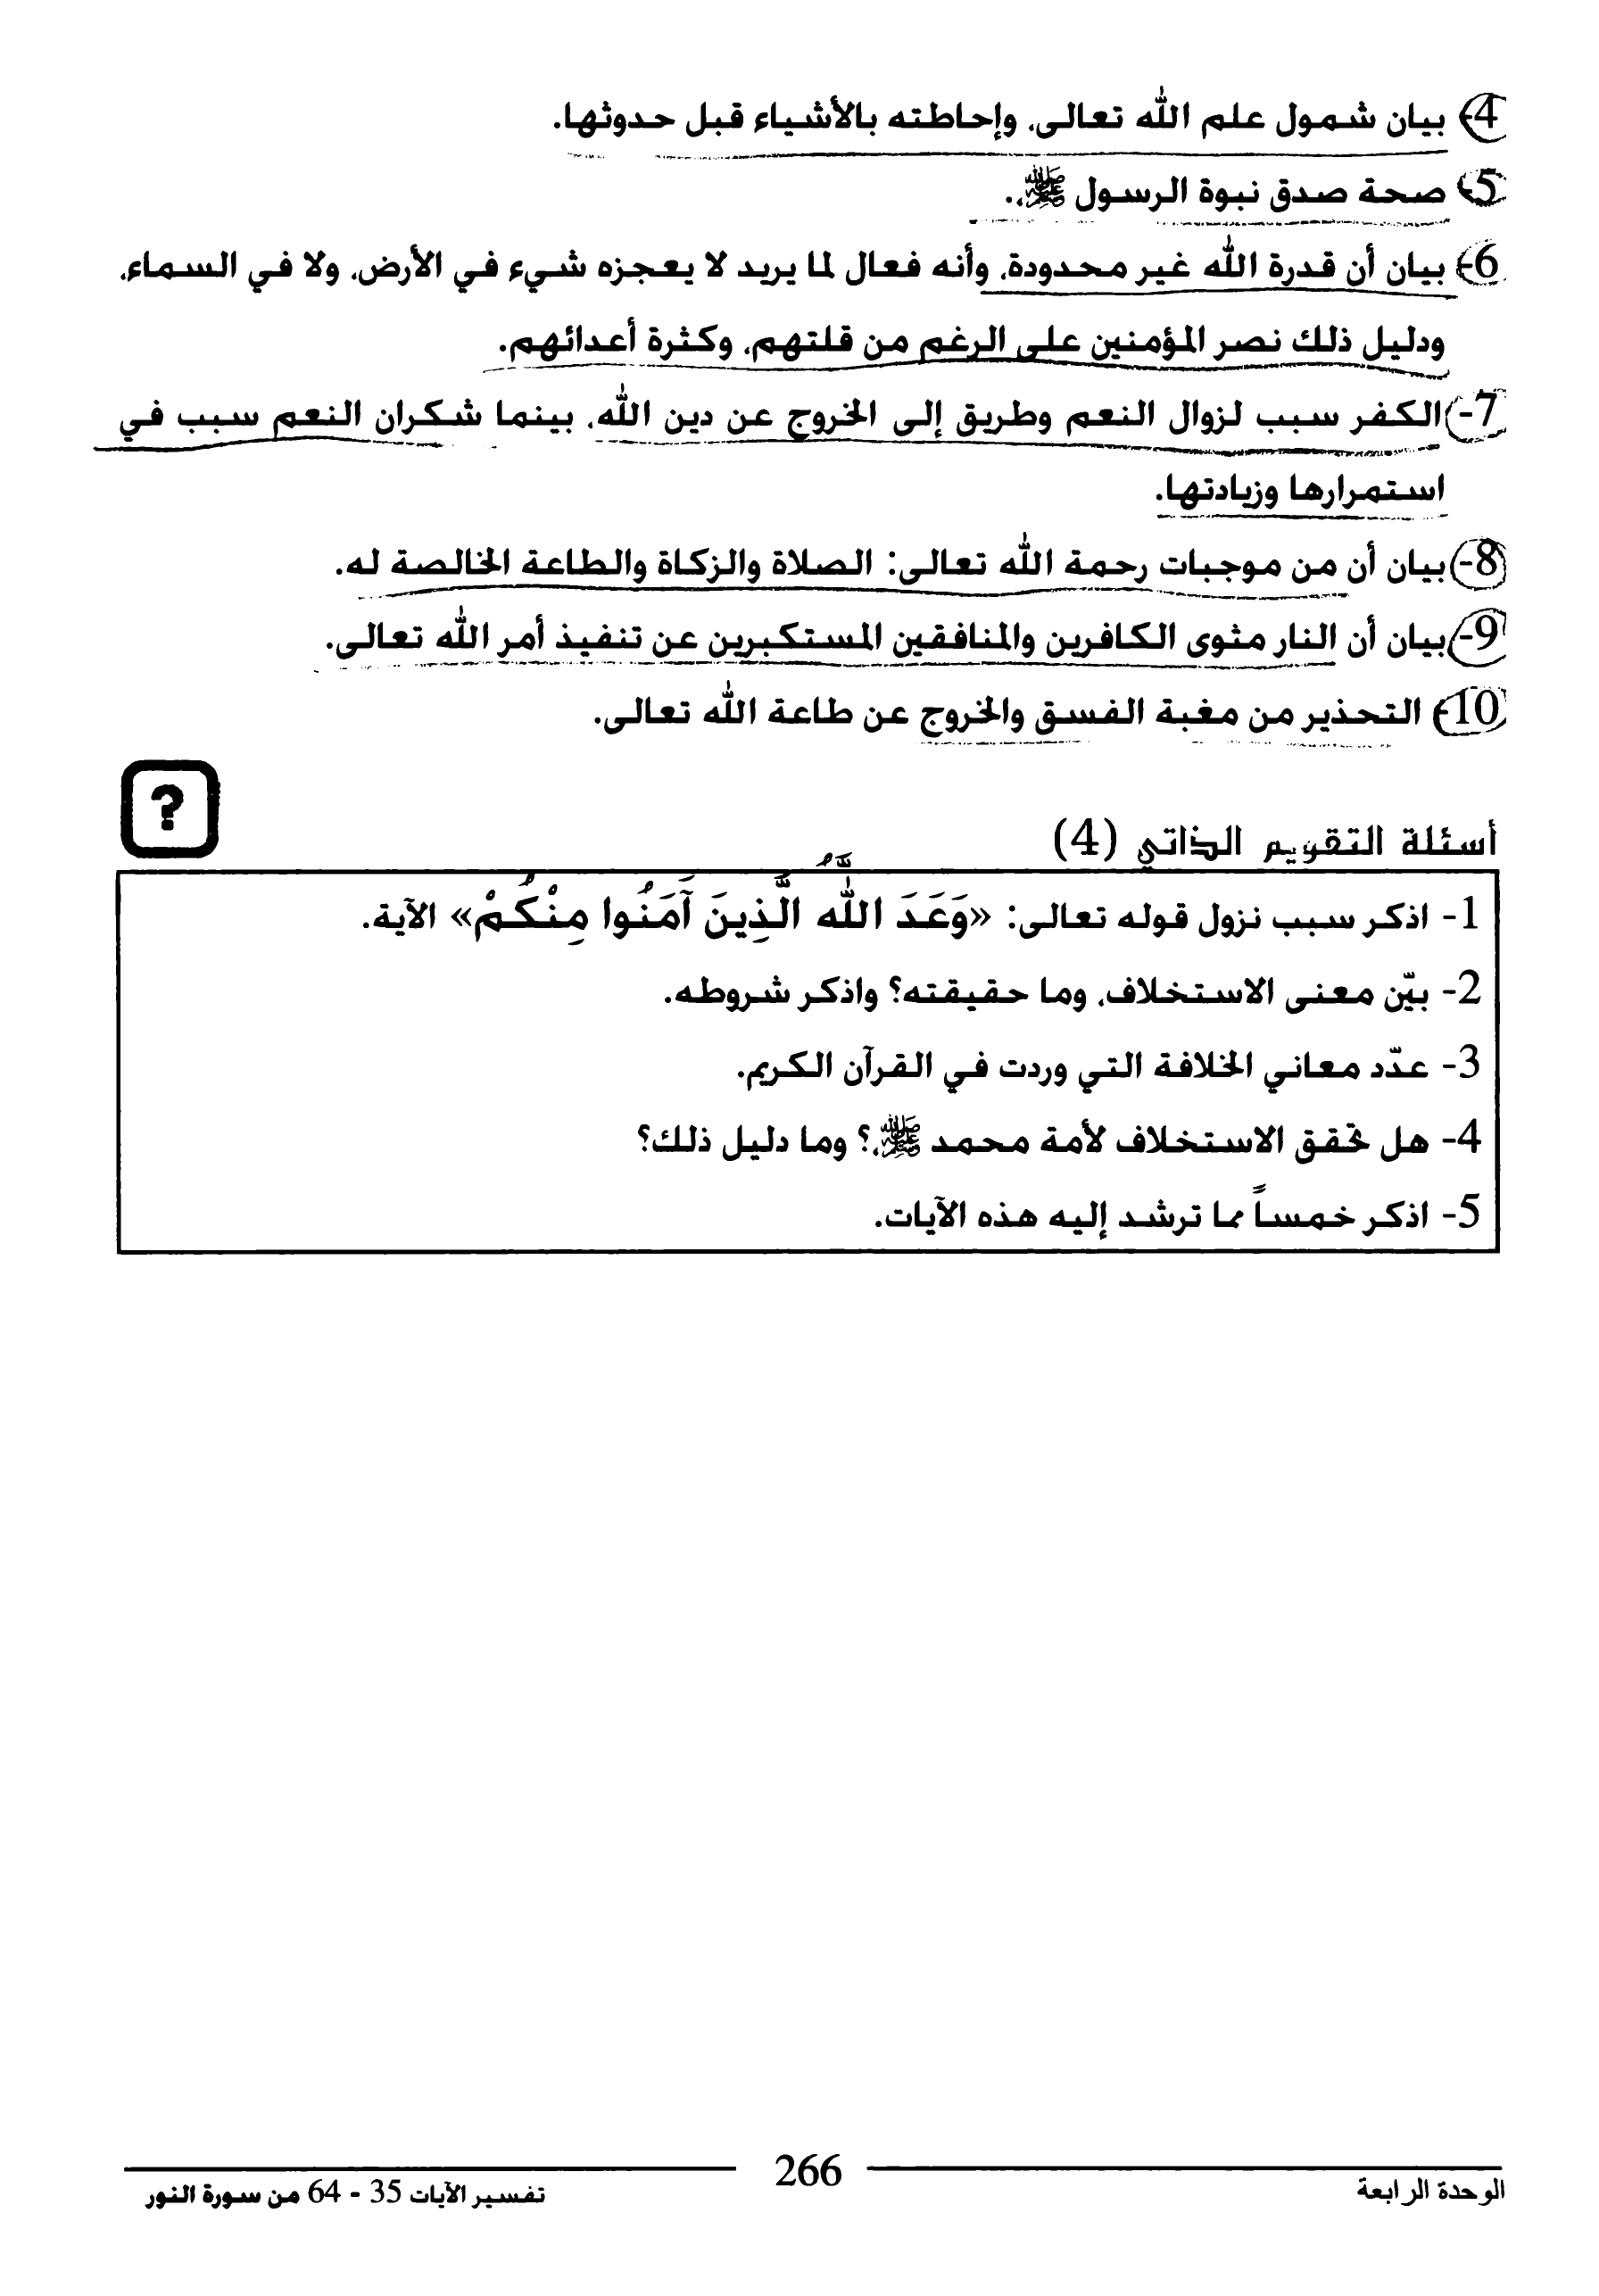 4- بيان شمول علم الله تعالى، وإحاطته بالأشياء قبل حدوثها.
5- صحة صدق نبوة الرسول ﷺ.
6- بيان أن قدرة الله غير محدودة، وأنه فعال لما يريد لا يعجزه شيء في الأرض، ولا في السماء،
ودليل ذلك نصر المؤمنين على الرغم من قلتهم، وكثرة أعدائهم.
7- الكفر سبب لزوال النعم وطريق إلى الخروج عن دين الله، بينما شكران النعم سبب في
استمرارها وزيادتها.
8- بيان أن من موجبات رحمة الله تعالى: الصلاة والزكاة والطاعة الخالصة له.
9- بيان أن النار مثوى الكافرين والمنافقين المستكبرين عن تنفيذ أمر الله تعالى.
10- التحذير من مغبة الفسق والخروج عن طاعة الله تعالى.
?
أسئلة التقويم الذاتي (4)
1- اذكر سبب نزول قوله تعالى: «وَعَدَ اللَّهُ الَّذِينَ آَمَنُوا مِنْكُمْ» الآية.
2- بيّن معنى الاستخلاف، وما حقيقته؟ واذكر شروطه.
3- عدّد معاني الخلافة التي وردت في القرآن الكريم.
4- هل تحقق الاستخلاف لأمة محمد ﷺ؟ وما دليل ذلك؟
5- اذكر خمساً مما ترشد إليه هذه الآيات.
الوحدة الرابعة
266
تفسير الآيات 35 - 64 من سورة النور